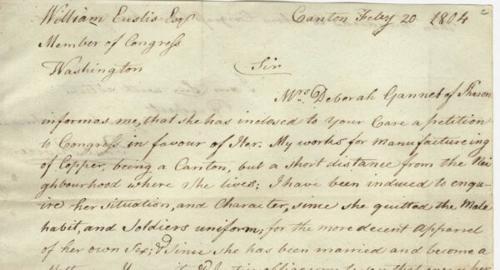 William Eustis Esqr Canton Feby 20 1804
Member of Congress
Washington
Sir
Mrs Deborah Gannet of Sharon
informes me, that she has inclosed to your Care a petition
to Congress in favour of Her. My works for manufactureing
of Copper, being a Canton, but a short distance from the Nei
ghbourhood where She lives; I have been induced to enqu-
ire her situation, and Character, since she quitted the Male
habit, and Soldiers uniform; for the more decent apparel
of her own Sex; & Since she has been married and become a